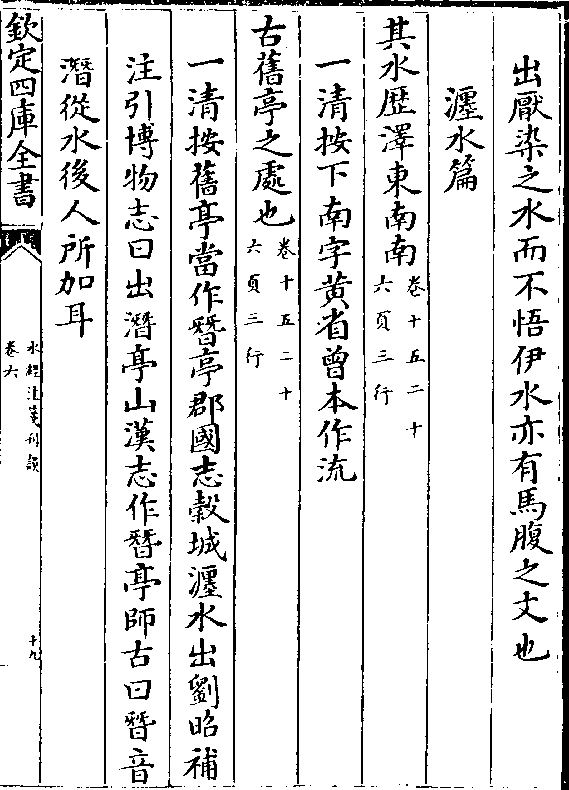 出厭染之水而不悟伊水亦有馬腹之文也
瀍水篇
其水歴澤東南南卷十五二十六頁三行
一清按下南字黄省曽本作流
古舊亭之處也卷十五二十六頁三行
一清按舊亭當作朁亭郡國志榖城瀍水出劉昭補
注引博物志曰出潛亭山漢志作朁亭師古曰朁音
潛從水後人所加耳
欽定四庫全書
水經注箋刊誤
卷六
十九